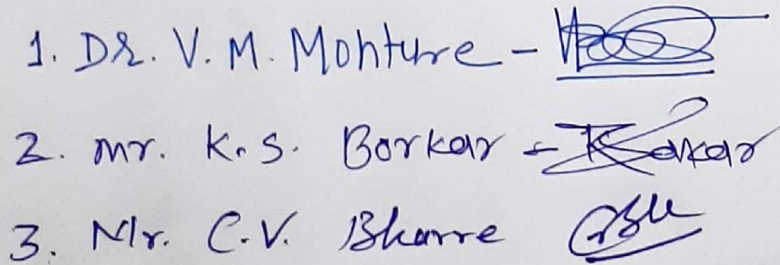 1. Dr. V. M. Mohture -
2. mr. K. S. Borkar -
3. Mr. C. V. Bharre